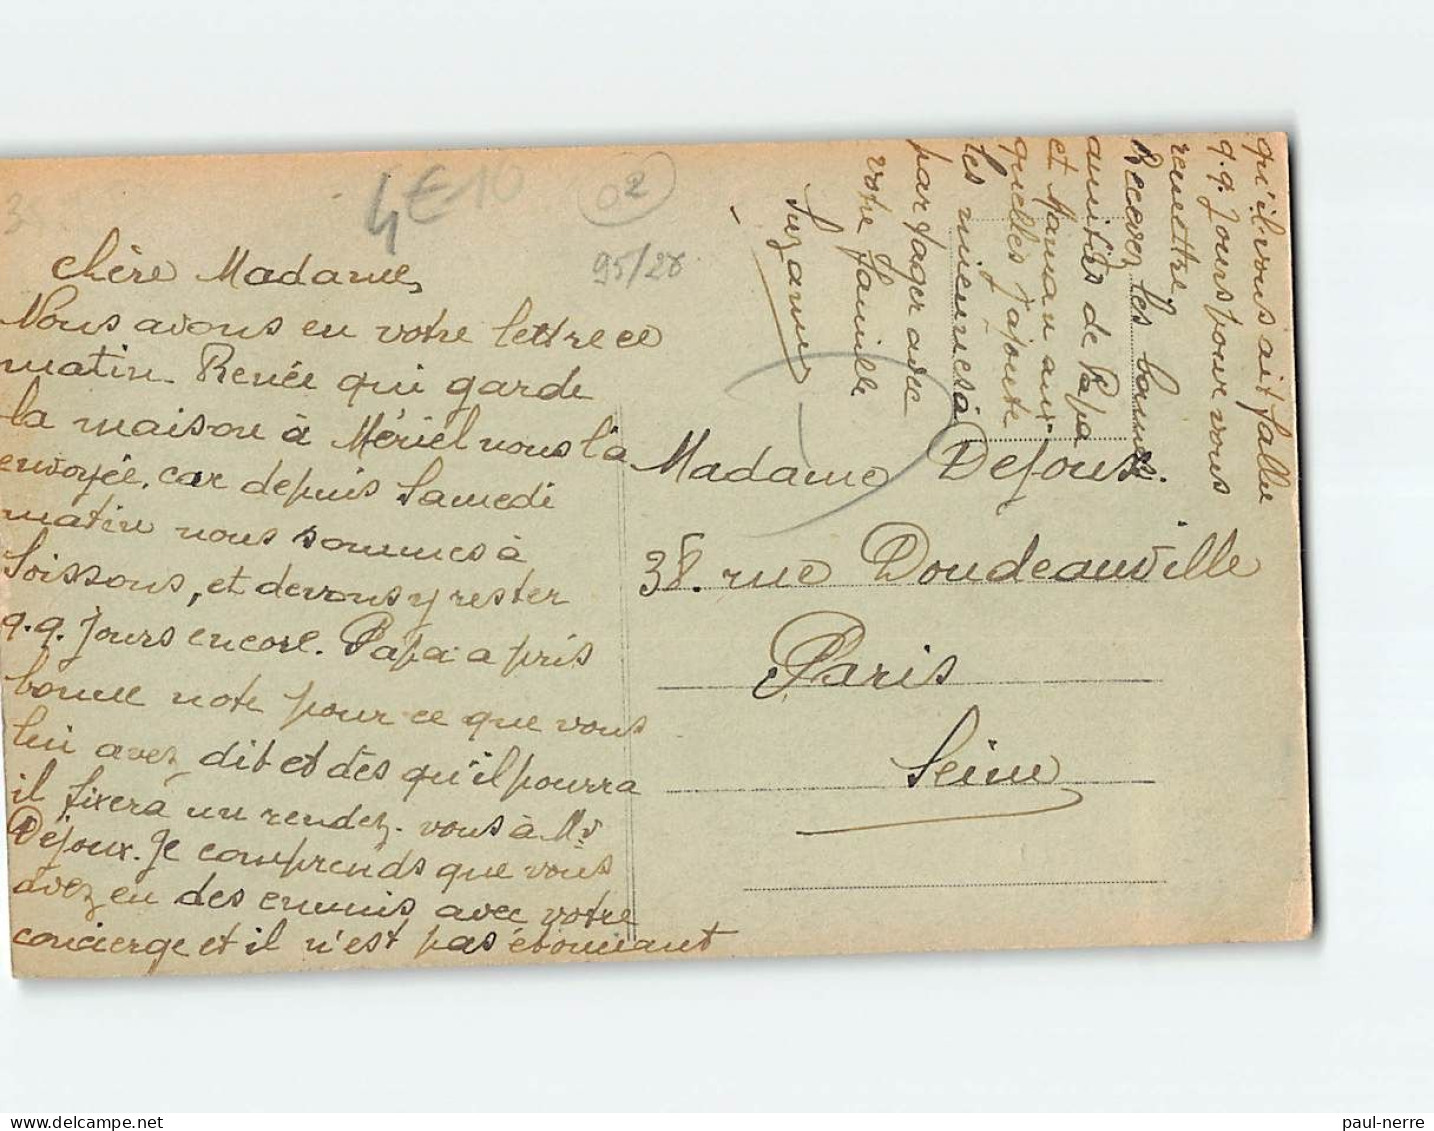 4€10
02
95/28
Chère Madame,
Nous avons eu votre lettre ce
matin. Renée qui garde
la maison à Mériel nous l'a
envoyée, car depuis Samedi
matin nous sommes à
Soissons, et devons y rester
q.q. jours encore. Papa a pris
bonne note pour ce que vous
lui avez dit et dès qu'il pourra
il fixera un rendez-vous à Mr
Déjoux. Je comprends que vous
avez eu des ennuis avec votre
concierge et il n'est pas étonnant
qu'il vous ait fallu
q.q. jours pour vous
remettre.
Recevez les bonnes
amitiés de Papa
et Maman aux-
quelles j'ajoute
les miennes à
partager avec
votre famille
Suzanne
Madame Dejoux.
38. rue Doudeauville
Paris
Seine
paul-nerre